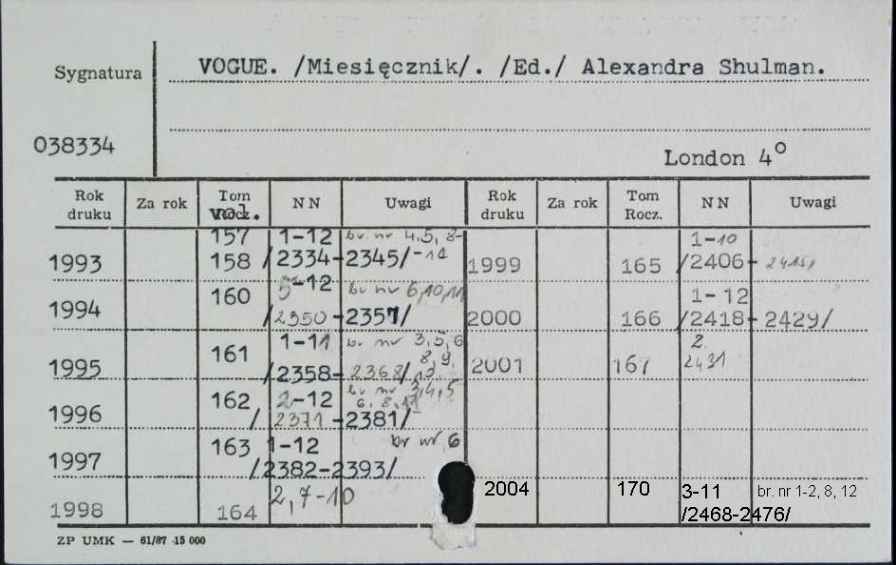 Sygnatura
VOGUE. /Miesięcznik/. /Ed./ Alexandra Shulman.
038334
London 4°
Rok druku Za rok Tom vol. NN Uwagi Rok druku Za rok Tom Rocz. NN Uwagi
157 1-12 br. nr 4,5, 8-
1993 158 /2334-2345/ -11
1-10
1999 165 /2406-2415/
1994 160 5-12 br nr 6,10,11
/2350-2357/
1-12
2000 166 /2418-2429/
1995 161 1-11 br. nr 3,5,6
8,9,
/2358-2368/
2
2001 167 2431
1996 162 2-12 br nr 3,4,5
6, 8, 11
/2371-2381/
1997 163 1-12 br nr 6
/2382-2393/
1998 164 2,7-10
2004 170 3-11 br. nr 1-2, 8, 12
/2468-2476/
ZP UMK — 61/87 15 000